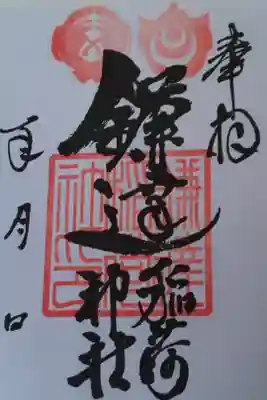 奉拝
鎌達稲荷神社
年 月 日